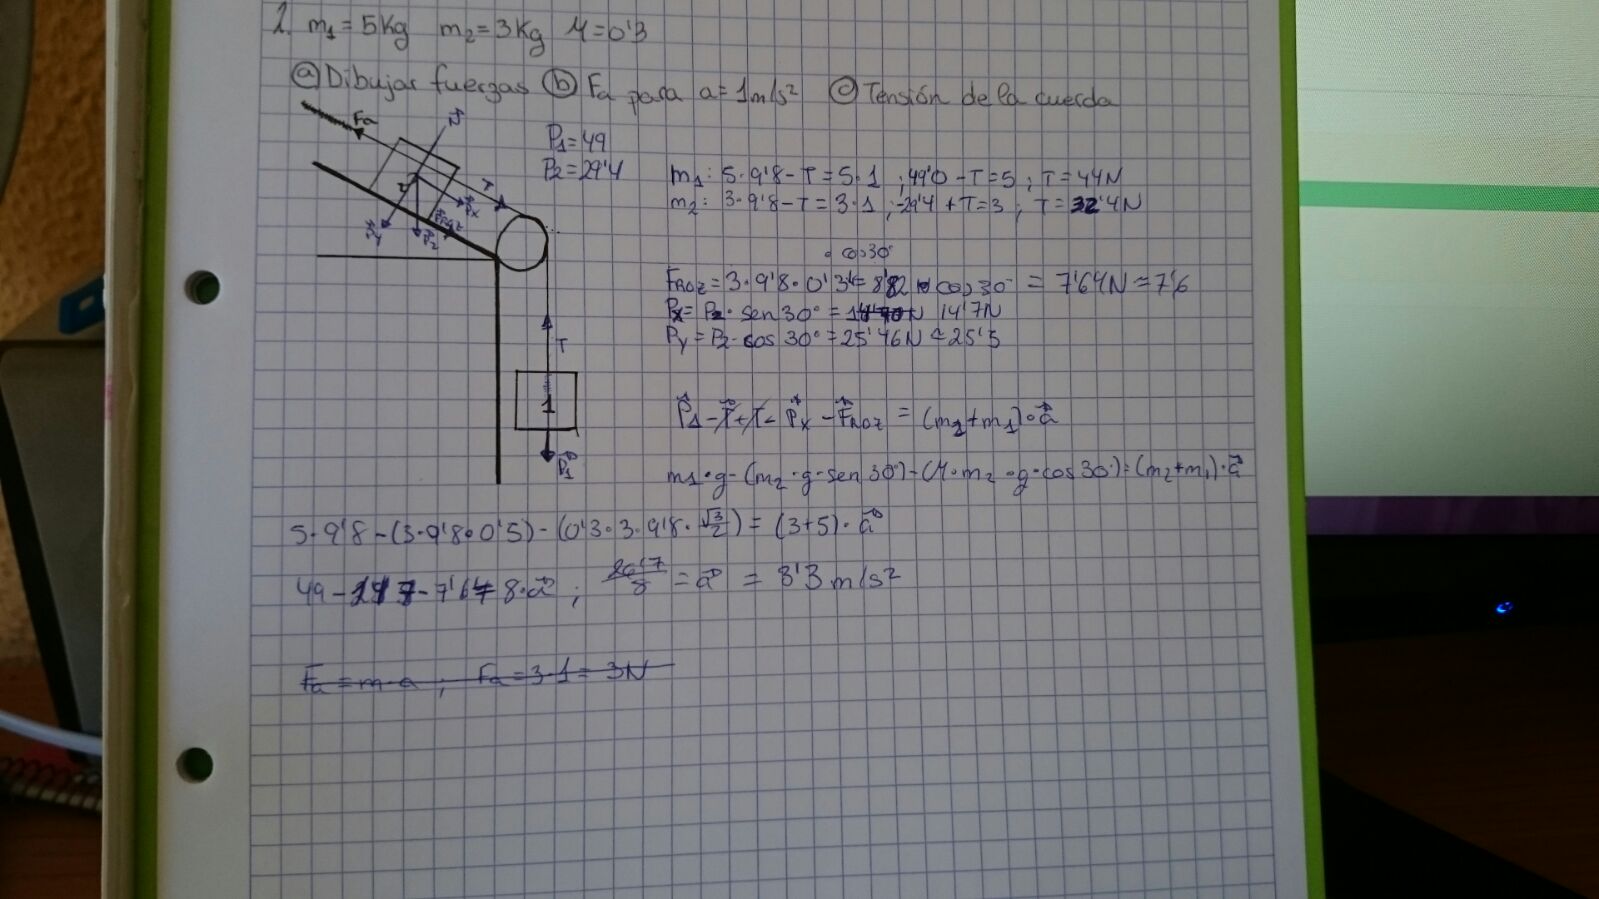 2. m1=5Kg m2=3Kg M=0'3
ⓐ Dibujar fuerzas ⓑ Fa para a=1m/s² ⓒ Tensión de la cuerda
Fa N
P1=49
P2=29'4
T
2
Px
Froz
Py
P2
m1: 5·9'8-T=5·1 ; 49'0-T=5 ; T=44N
m2: 3·9'8-T=3·1 ; -29'4+T=3 ; T=32'4N
· cos30°
FROZ=3·9'8·0'3=8'82 · cos30°=7'64N≃7'6
Px=P2·sen30°= 14'7N
Py=P2·cos30°=25'46N≃25'5
T
1
P1
P1-T+T-Px-FROZ=(m2+m1)·a
m1·g-(m2·g·sen30°)-(M·m2·g·cos30°)=(m2+m1)·a
5·9'8-(3·9'8·0'5)-(0'3·3·9'8·√3/2)=(3+5)·a
49-14'7-7'64=8·a ; 26'7/8=a=3'3m/s²
Fa=m·a ; Fa=3·1=3N